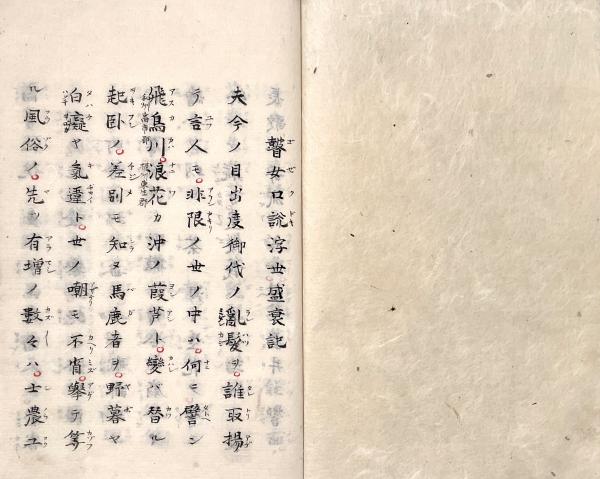 瞽女口説浮世盛衰記
夫今ノ目出度御代ノ亂髪ヲ誰取揚
テ言人モ非限ノ世ノ中ハ何ニ譬ン
飛鳥川浪花カ沖ノ葭芦ト變バ替ル
起臥ノ差別モ知ヌ馬鹿者ヲ野暮ヤ
白癡ヤ氣違ト世ノ嘲モ不省擧テ算
ル風俗ノ先ツ有増ノ數々ハ士農工